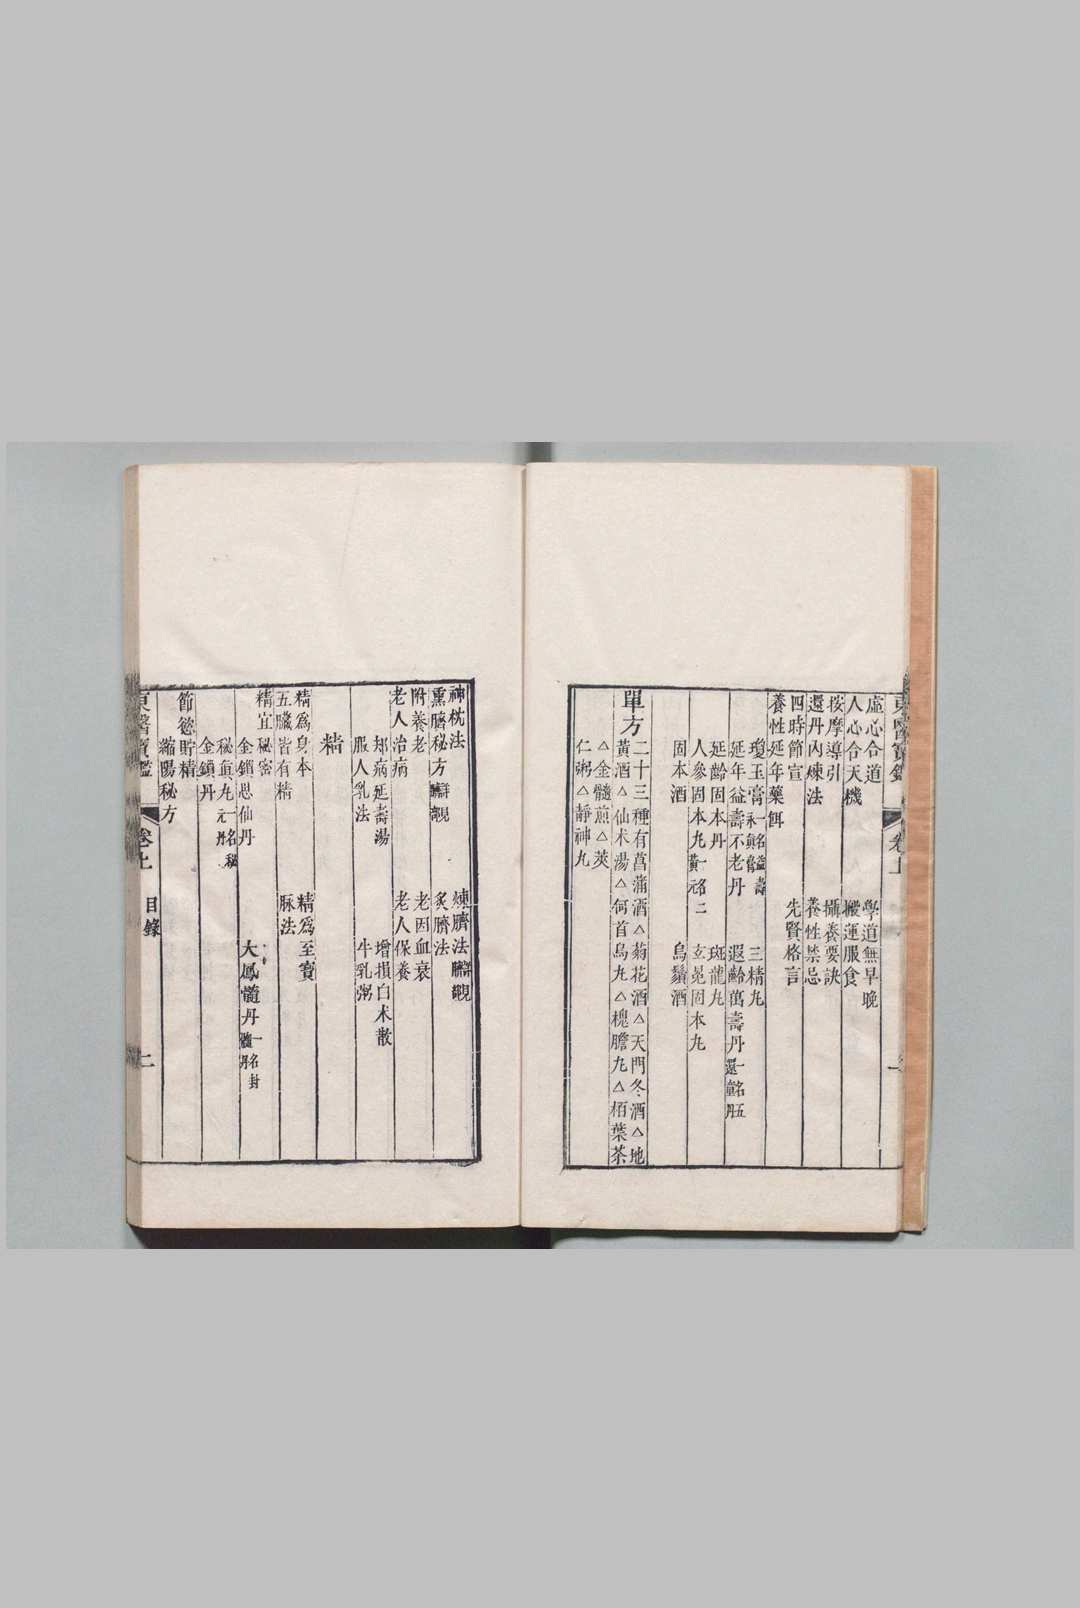 虛心合道 學道無早晚
人心合天機 搬運服食
按摩導引 攝養要訣
還丹內煉法 養性禁忌
四時節宣 先賢格言
養性延年藥餌
瓊玉膏一名益壽永眞膏 三精丸
延年益壽不老丹 遐齡萬壽丹一名五還童丹
延齡固本丹 班龍丸
人參固本丸一名二黃元 玄菟固本丸
固本酒 烏鬚酒
單方二十三種有菖蒲酒△菊花酒△天門冬酒△地
黃酒△仙朮湯△何首烏丸△槐膽丸△栢葉茶
△金髓煎△萸
仁粥△靜神丸
神枕法 煉臍法詳見臍
熏臍秘方詳見臍部 灸臍法
附養老 老因血衰
老人治病 老人保養
却病延壽湯 增損白朮散
服人乳法 牛乳粥
精
精爲身本 精爲至寶
五臟皆有精 脉法
精宜秘密
金鎖思仙丹 大鳳髓丹一名封髓丹
秘眞丸一名秘元丹
金鎖丹
節慾貯精
縮陽秘方
東醫寶鑑 卷上 目錄 二